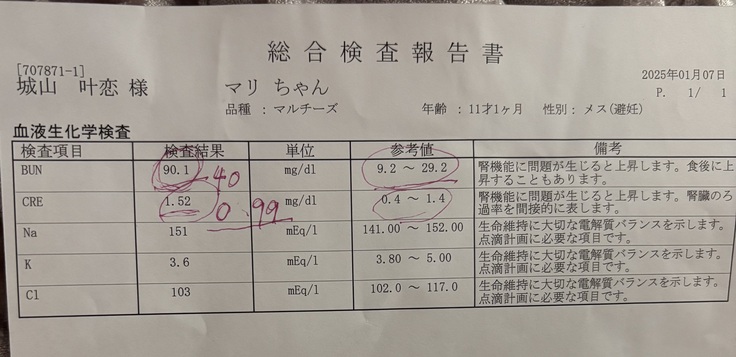 総合検査報告書
[707871-1]
2025年01月07日
城山 叶恋 様 マリ ちゃん
P. 1/ 1
品種 : マルチーズ 年齢 : 11才1ヶ月 性別: メス(避妊)
血液生化学検査
検査項目 検査結果 単位 参考値 備考
BUN 90.1 40 mg/dl 9.2 ～ 29.2 腎機能に問題が生じると上昇します。食後に上
昇することもあります。
CRE 1.52 0.99 mg/dl 0.4 ～ 1.4 腎機能に問題が生じると上昇します。腎臓のろ
過率を間接的に表します。
Na 151 mEq/l 141.00 ～ 152.00 生命維持に大切な電解質バランスを示します。
点滴計画に必要な項目です。
K 3.6 mEq/l 3.80 ～ 5.00 生命維持に大切な電解質バランスを示します。
点滴計画に必要な項目です。
Cl 103 mEq/l 102.0 ～ 117.0 生命維持に大切な電解質バランスを示します。
点滴計画に必要な項目です。